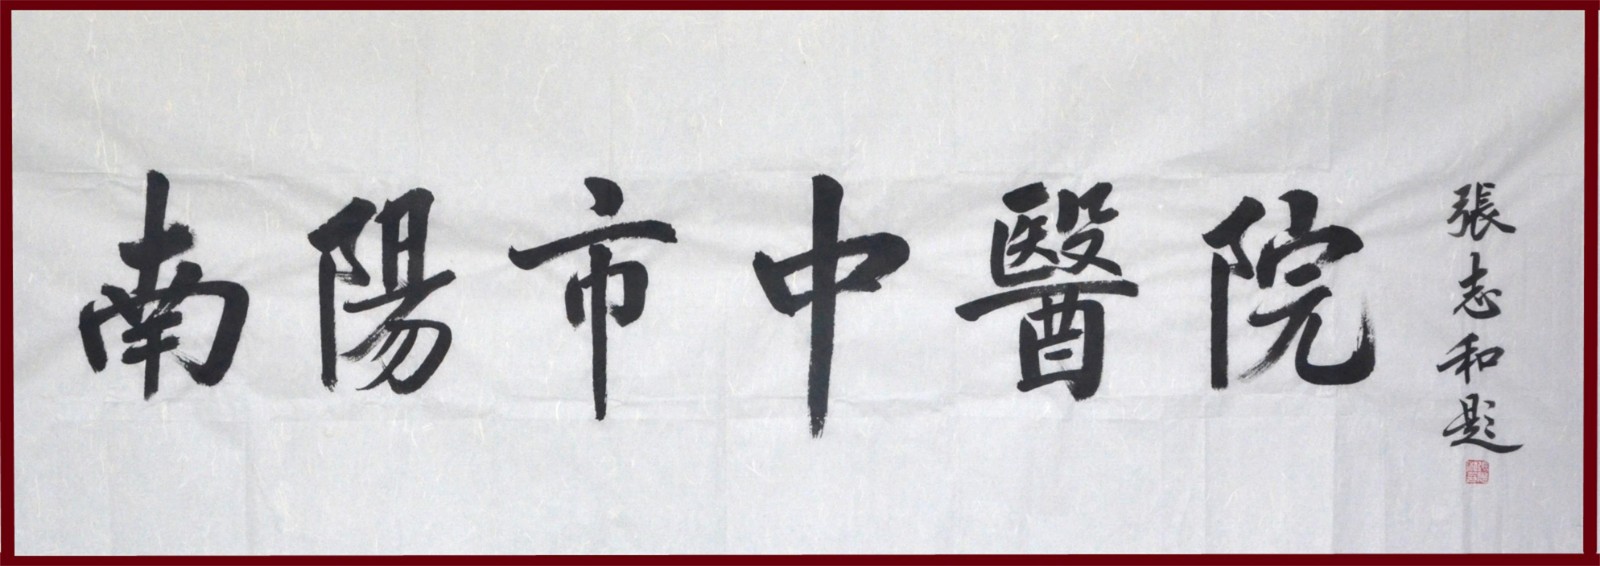 南陽市中醫院
張志和題